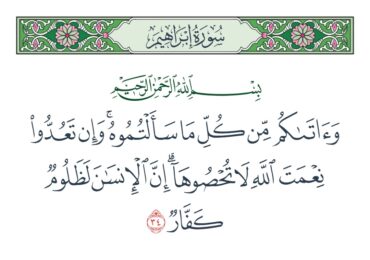 سُورَةُ إِبۡرَاهِيم
بِسۡمِ ٱللَّهِ ٱلرَّحۡمَٰنِ ٱلرَّحِيمِ
وَءَاتَىٰكُم مِّن كُلِّ مَا سَأَلۡتُمُوهُۚ وَإِن تَعُدُّواْ
نِعۡمَتَ ٱللَّهِ لَا تُحۡصُوهَآۗ إِنَّ ٱلۡإِنسَٰنَ لَظَلُومٞ
كَفَّارٞ ٣٤